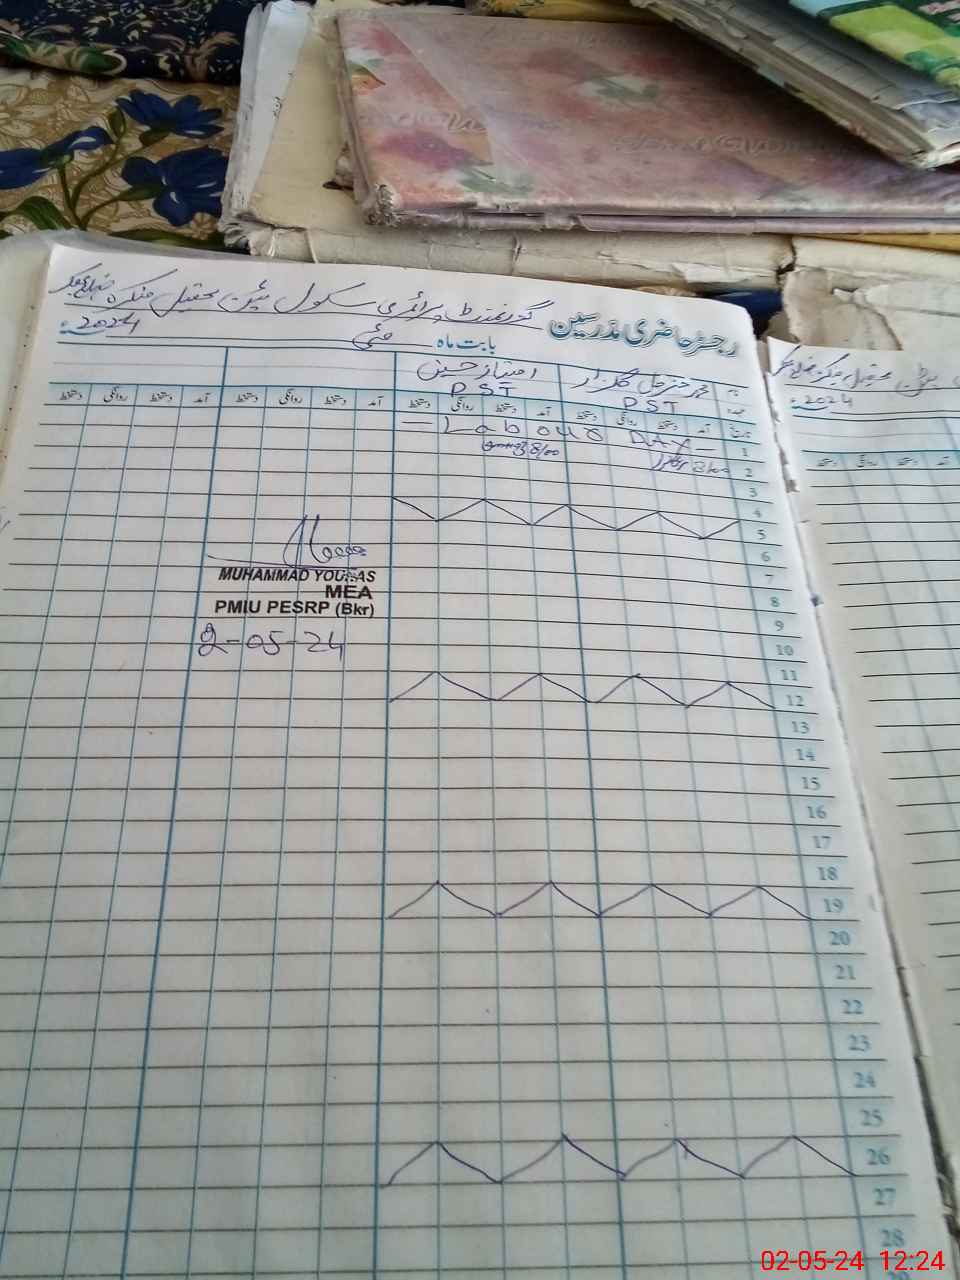 گورنمنٹ پرائمری سکول تحصیل منکیرہ ضلع بھکر
رجسٹر حاضری مدرسین
بابت ماہ مئی 2024
نام محمد مزمل گلزار امتیاز حسین
عہدہ PST PST
تاریخ آمد دستخط روانگی دستخط آمد دستخط روانگی دستخط آمد دستخط روانگی دستخط آمد دستخط روانگی دستخط
1 — Labour DAY —
2 8/00 گلزار 8/00
3
4
5
6
7
8
9
10
11
12
13
14
15
16
17
18
19
20
21
22
23
24
25
26
27
28
MUHAMMAD YOUNAS
MEA
PMIU PESRP (Bkr)
2-05-24
2024
02-05-24 12:24